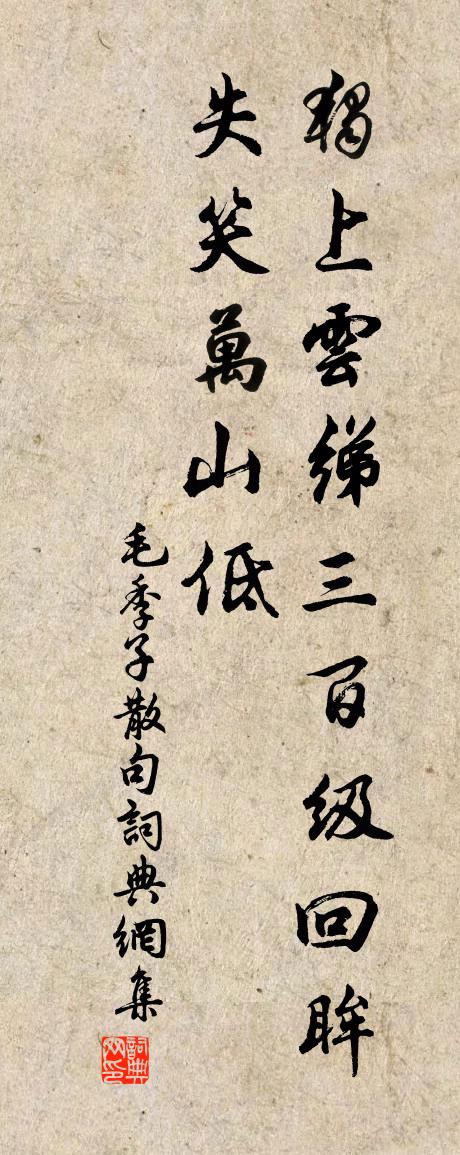 獨上雲綈三百級回眸
失笑萬山低
毛季子散句詞典網集
詞典
网印